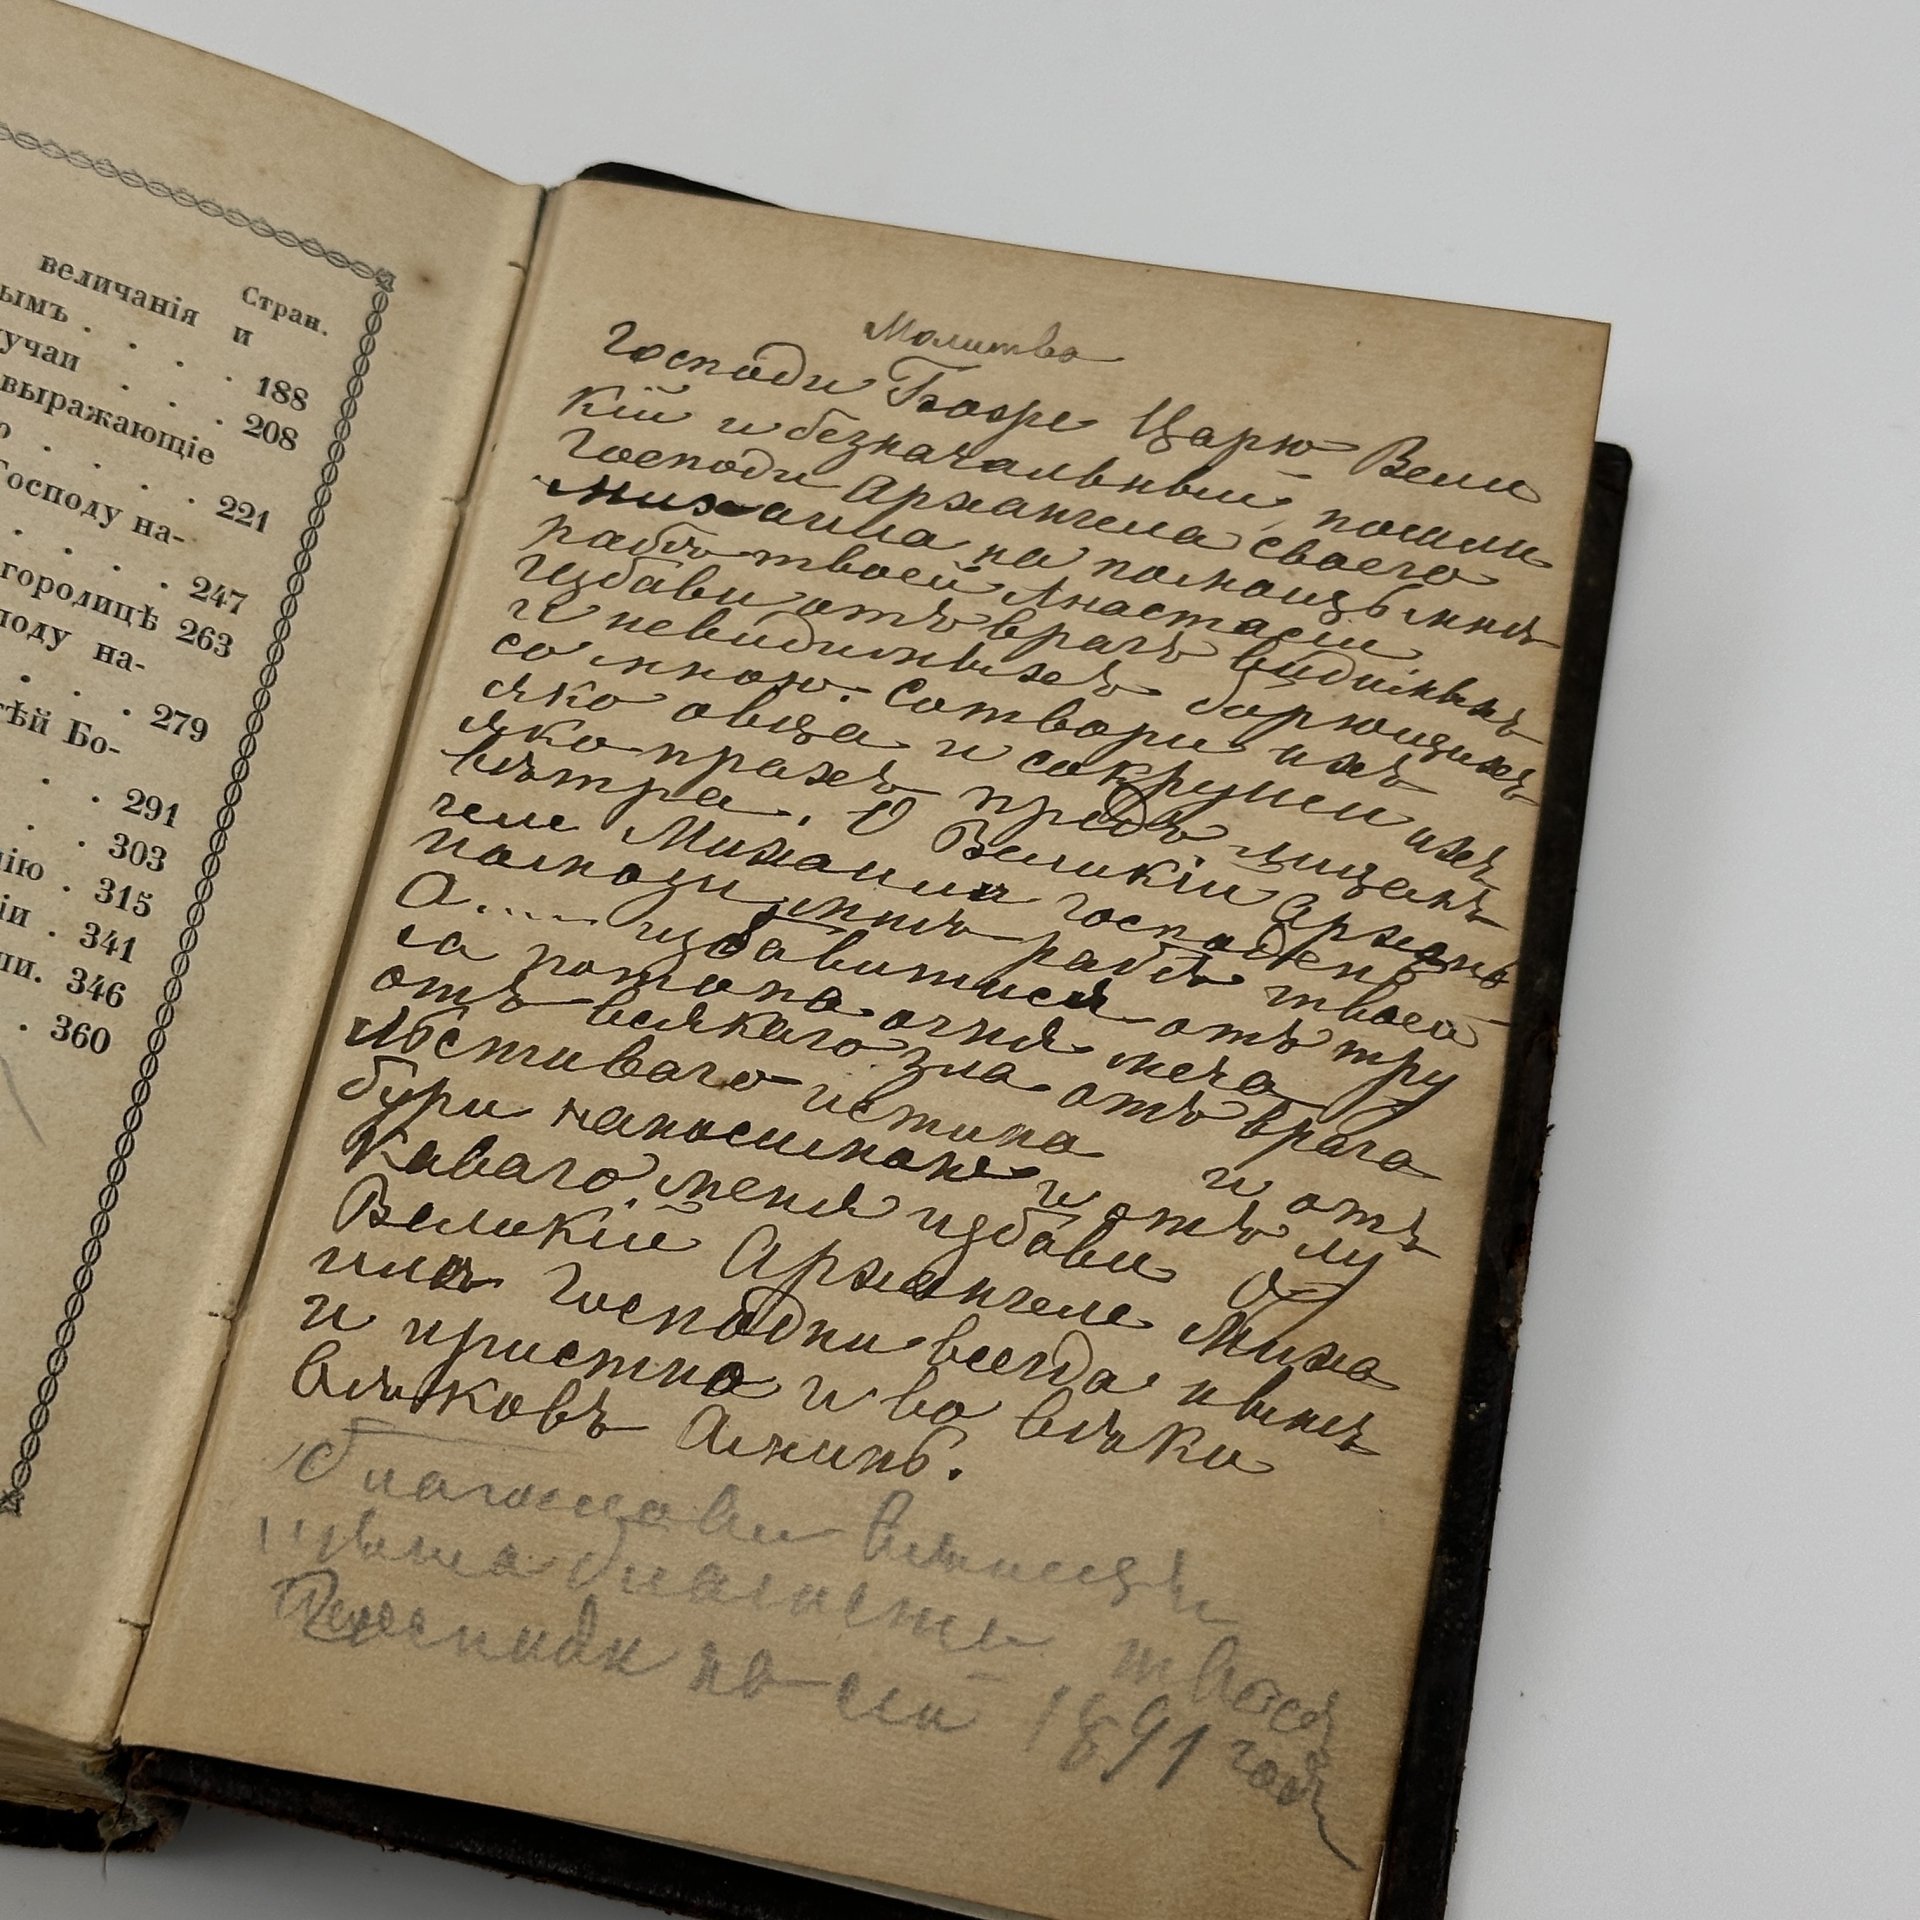 Стран.
величанія и
ымъ . . . . 188
учаи . . . . 208
выражающіе
о . . . . . 221
Господу на-
. . . . . 247
городицѣ 263
поду на-
. . . . . 279
тѣй Бо-
. . . 291
. . 303
нію . 315
іи . 341
ли. 346
. 360
Молитва
Господи Боже Царю Вели
кій и безначальный, пошли
Господи Архангела своего
Михаила на помощь мнѣ
рабѣ твоей Анастасіи
избави отъ врагъ видимыхъ
и невидимыхъ борющихъ
со мною. Сотвори ихъ
яко овца и сокруши ихъ
яко прахъ предъ лицемъ
вѣтра. О Великій Архан
геле Михаиле Господень
помози мнѣ рабѣ твоей
А..... избавитися отъ тру
са потопа огня меча
отъ всякаго зла отъ врага
льстиваго истина и отъ
бури наносимоя и отъ лу
каваго меня избави О
Великій Архангеле Миха
иле Господни всегда нынѣ
и пристно и во вѣки
вѣковъ Аминь.
благослови вѣнецъ
лѣта благости твоея
Господи на сей 1891 годъ